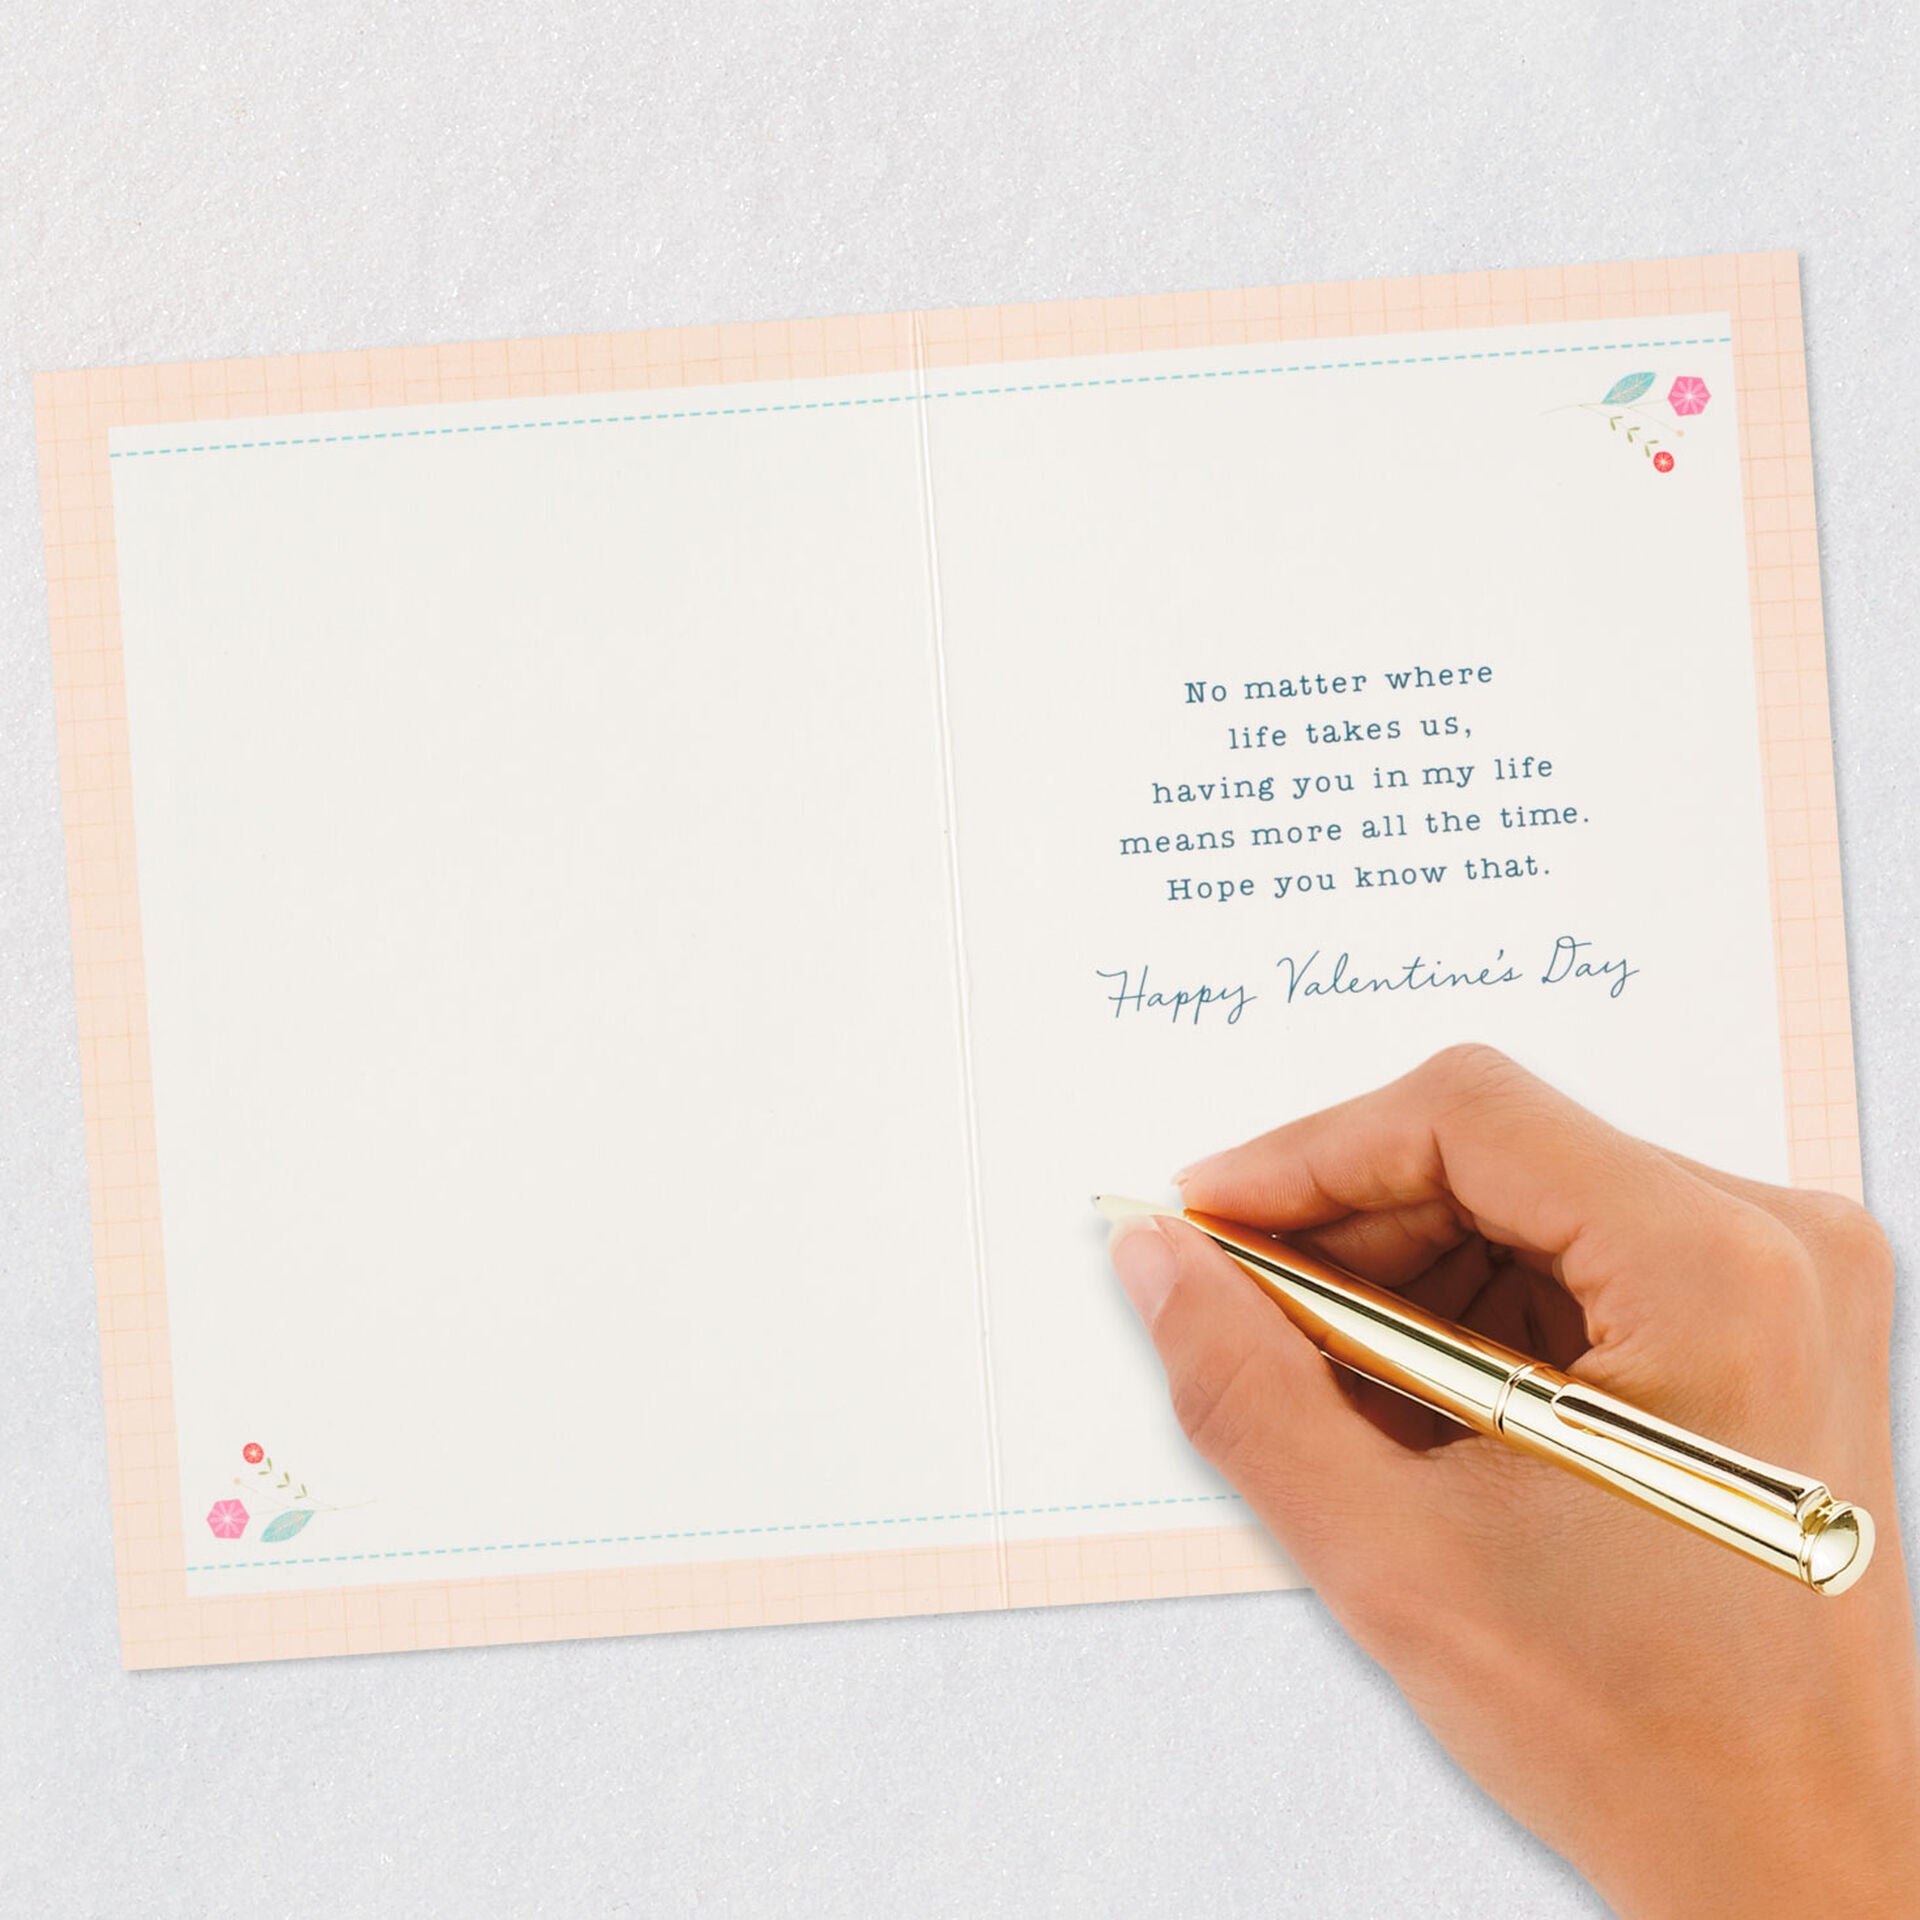 No matter where
life takes us,
having you in my life
means more all the time.
Hope you know that.
Happy Valentine's Day